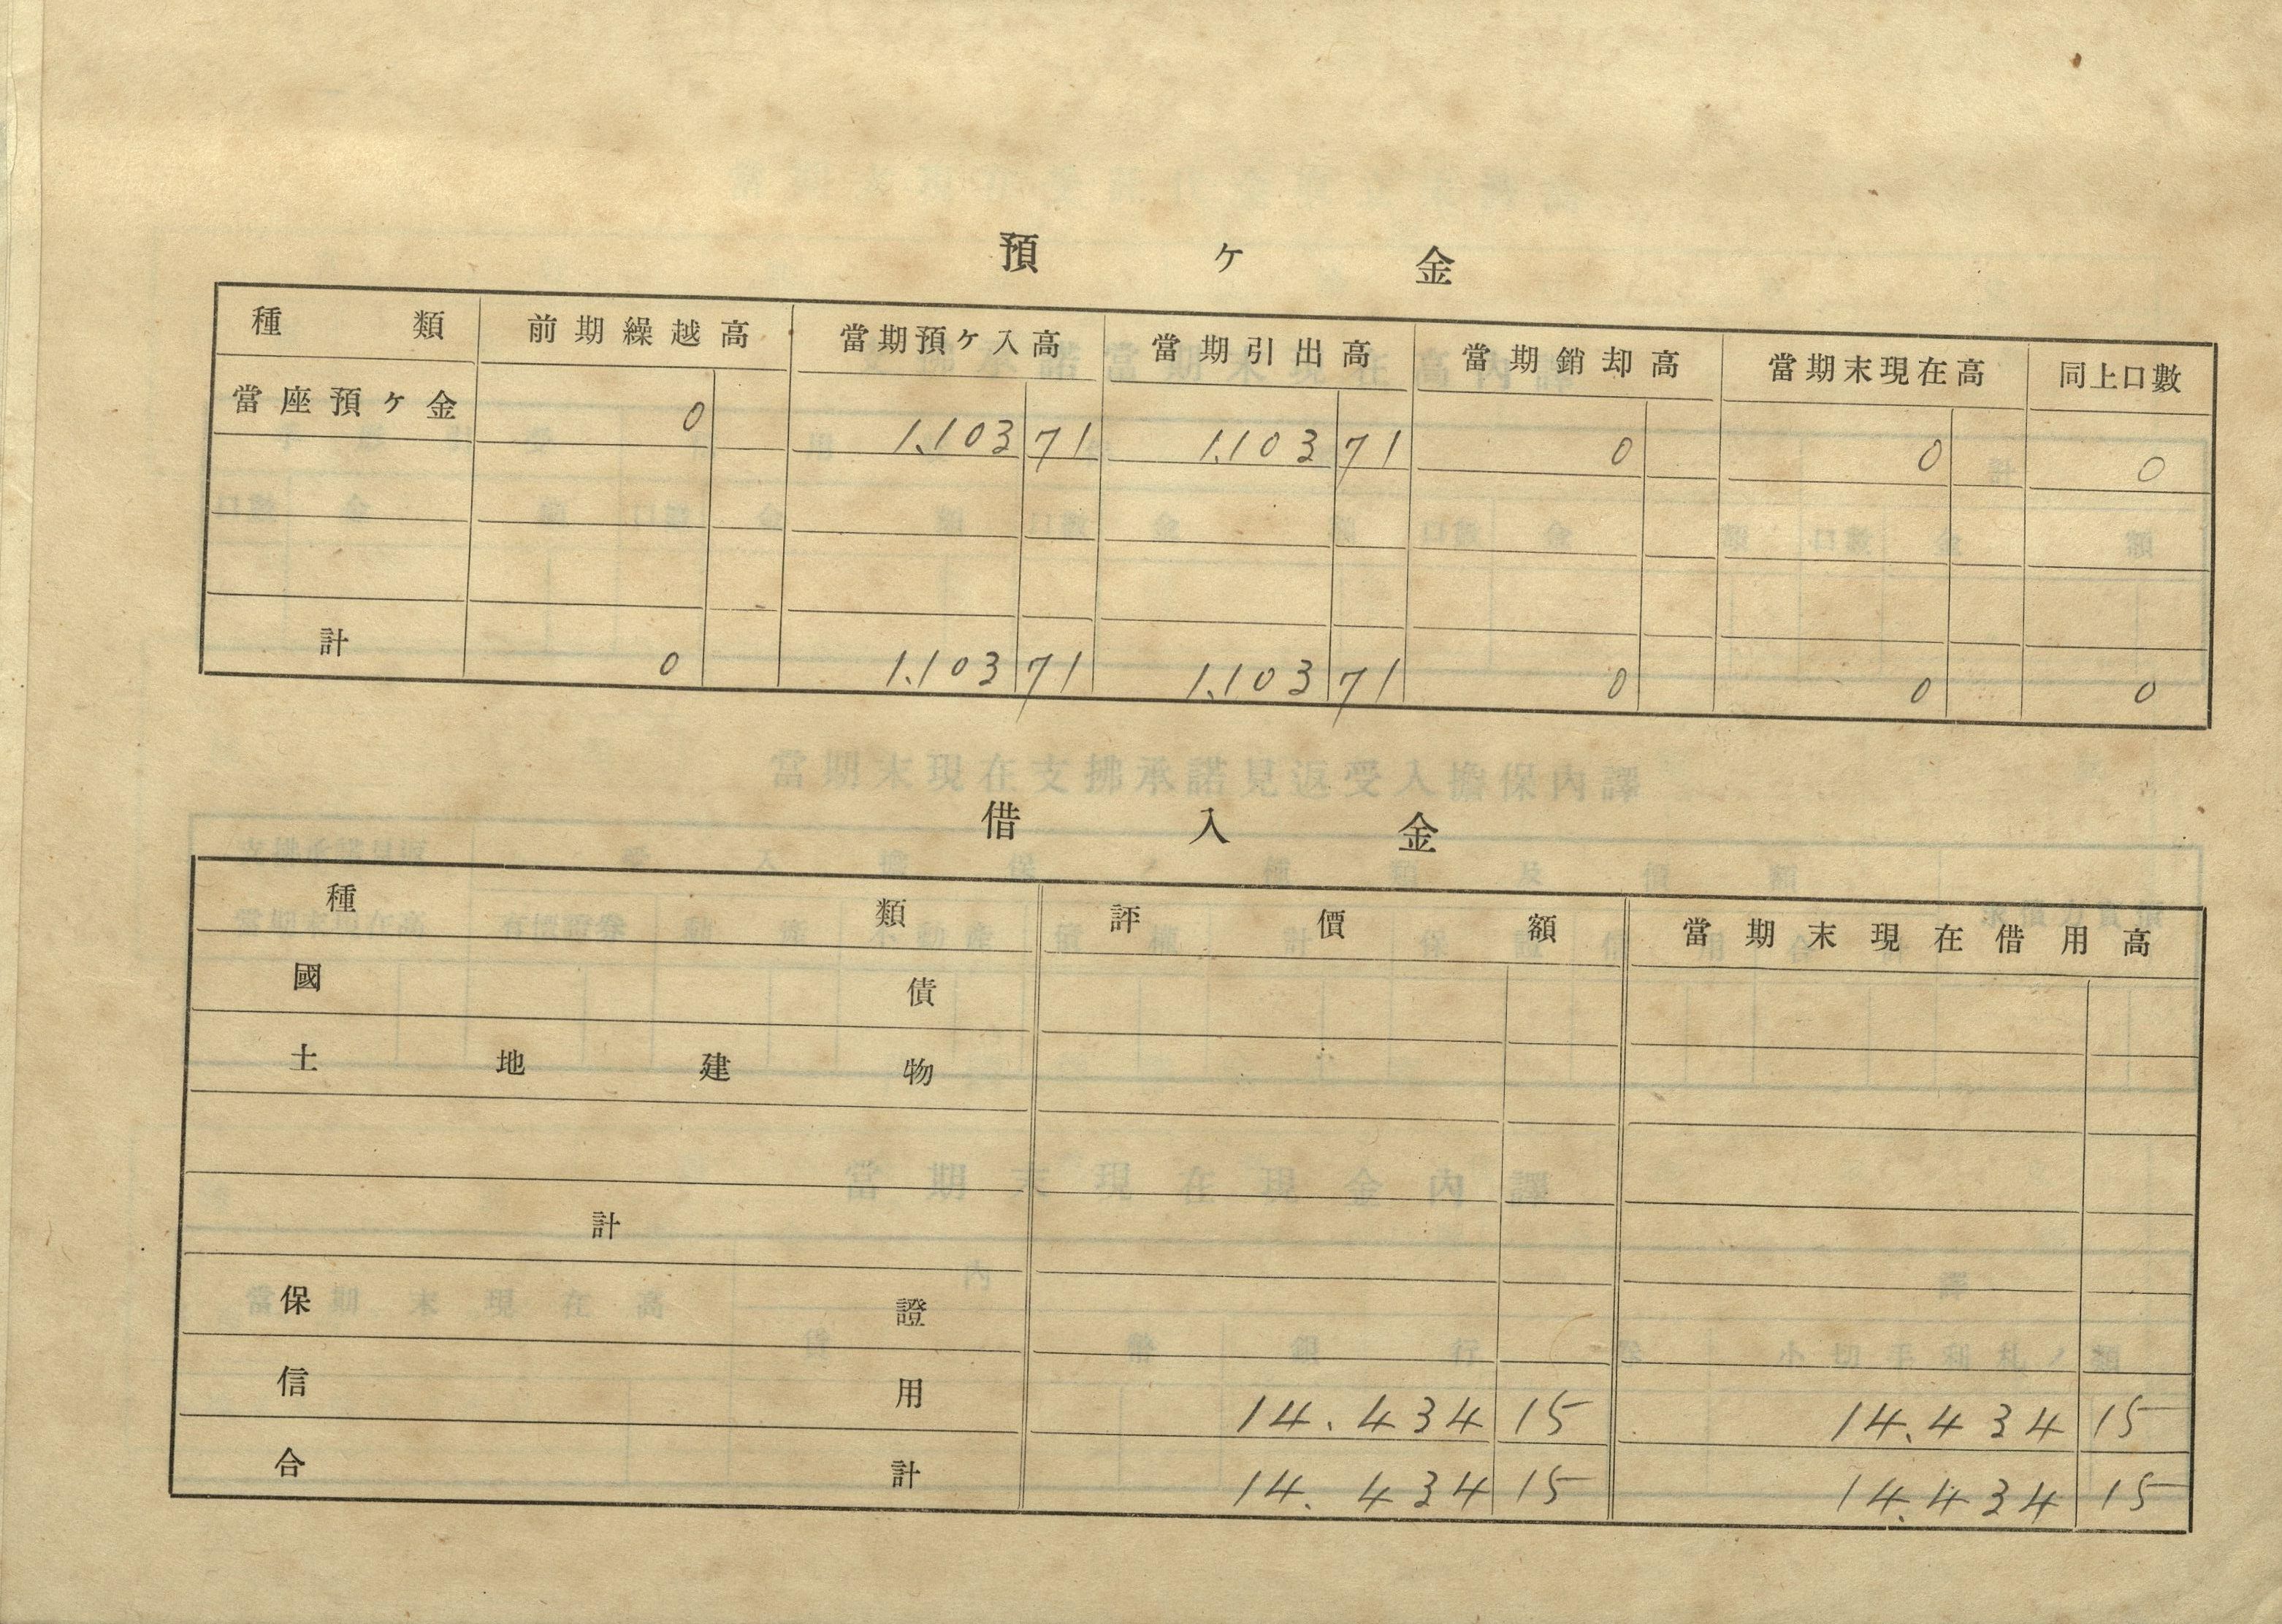 預ケ金
種類 前期繰越高 當期預ケ入高 當期引出高 當期銷却高 當期末現在高 同上口數
當座預ケ金 0 1.103 71 1.103 71 0 0 0
計 0 1.103 71 1.103 71 0 0 0
借入金
種類 評價額 當期末現在借用高
國債
土地建物
計
保證
信用 14.434 15 14.434 15
合計 14.434 15 14.434 15